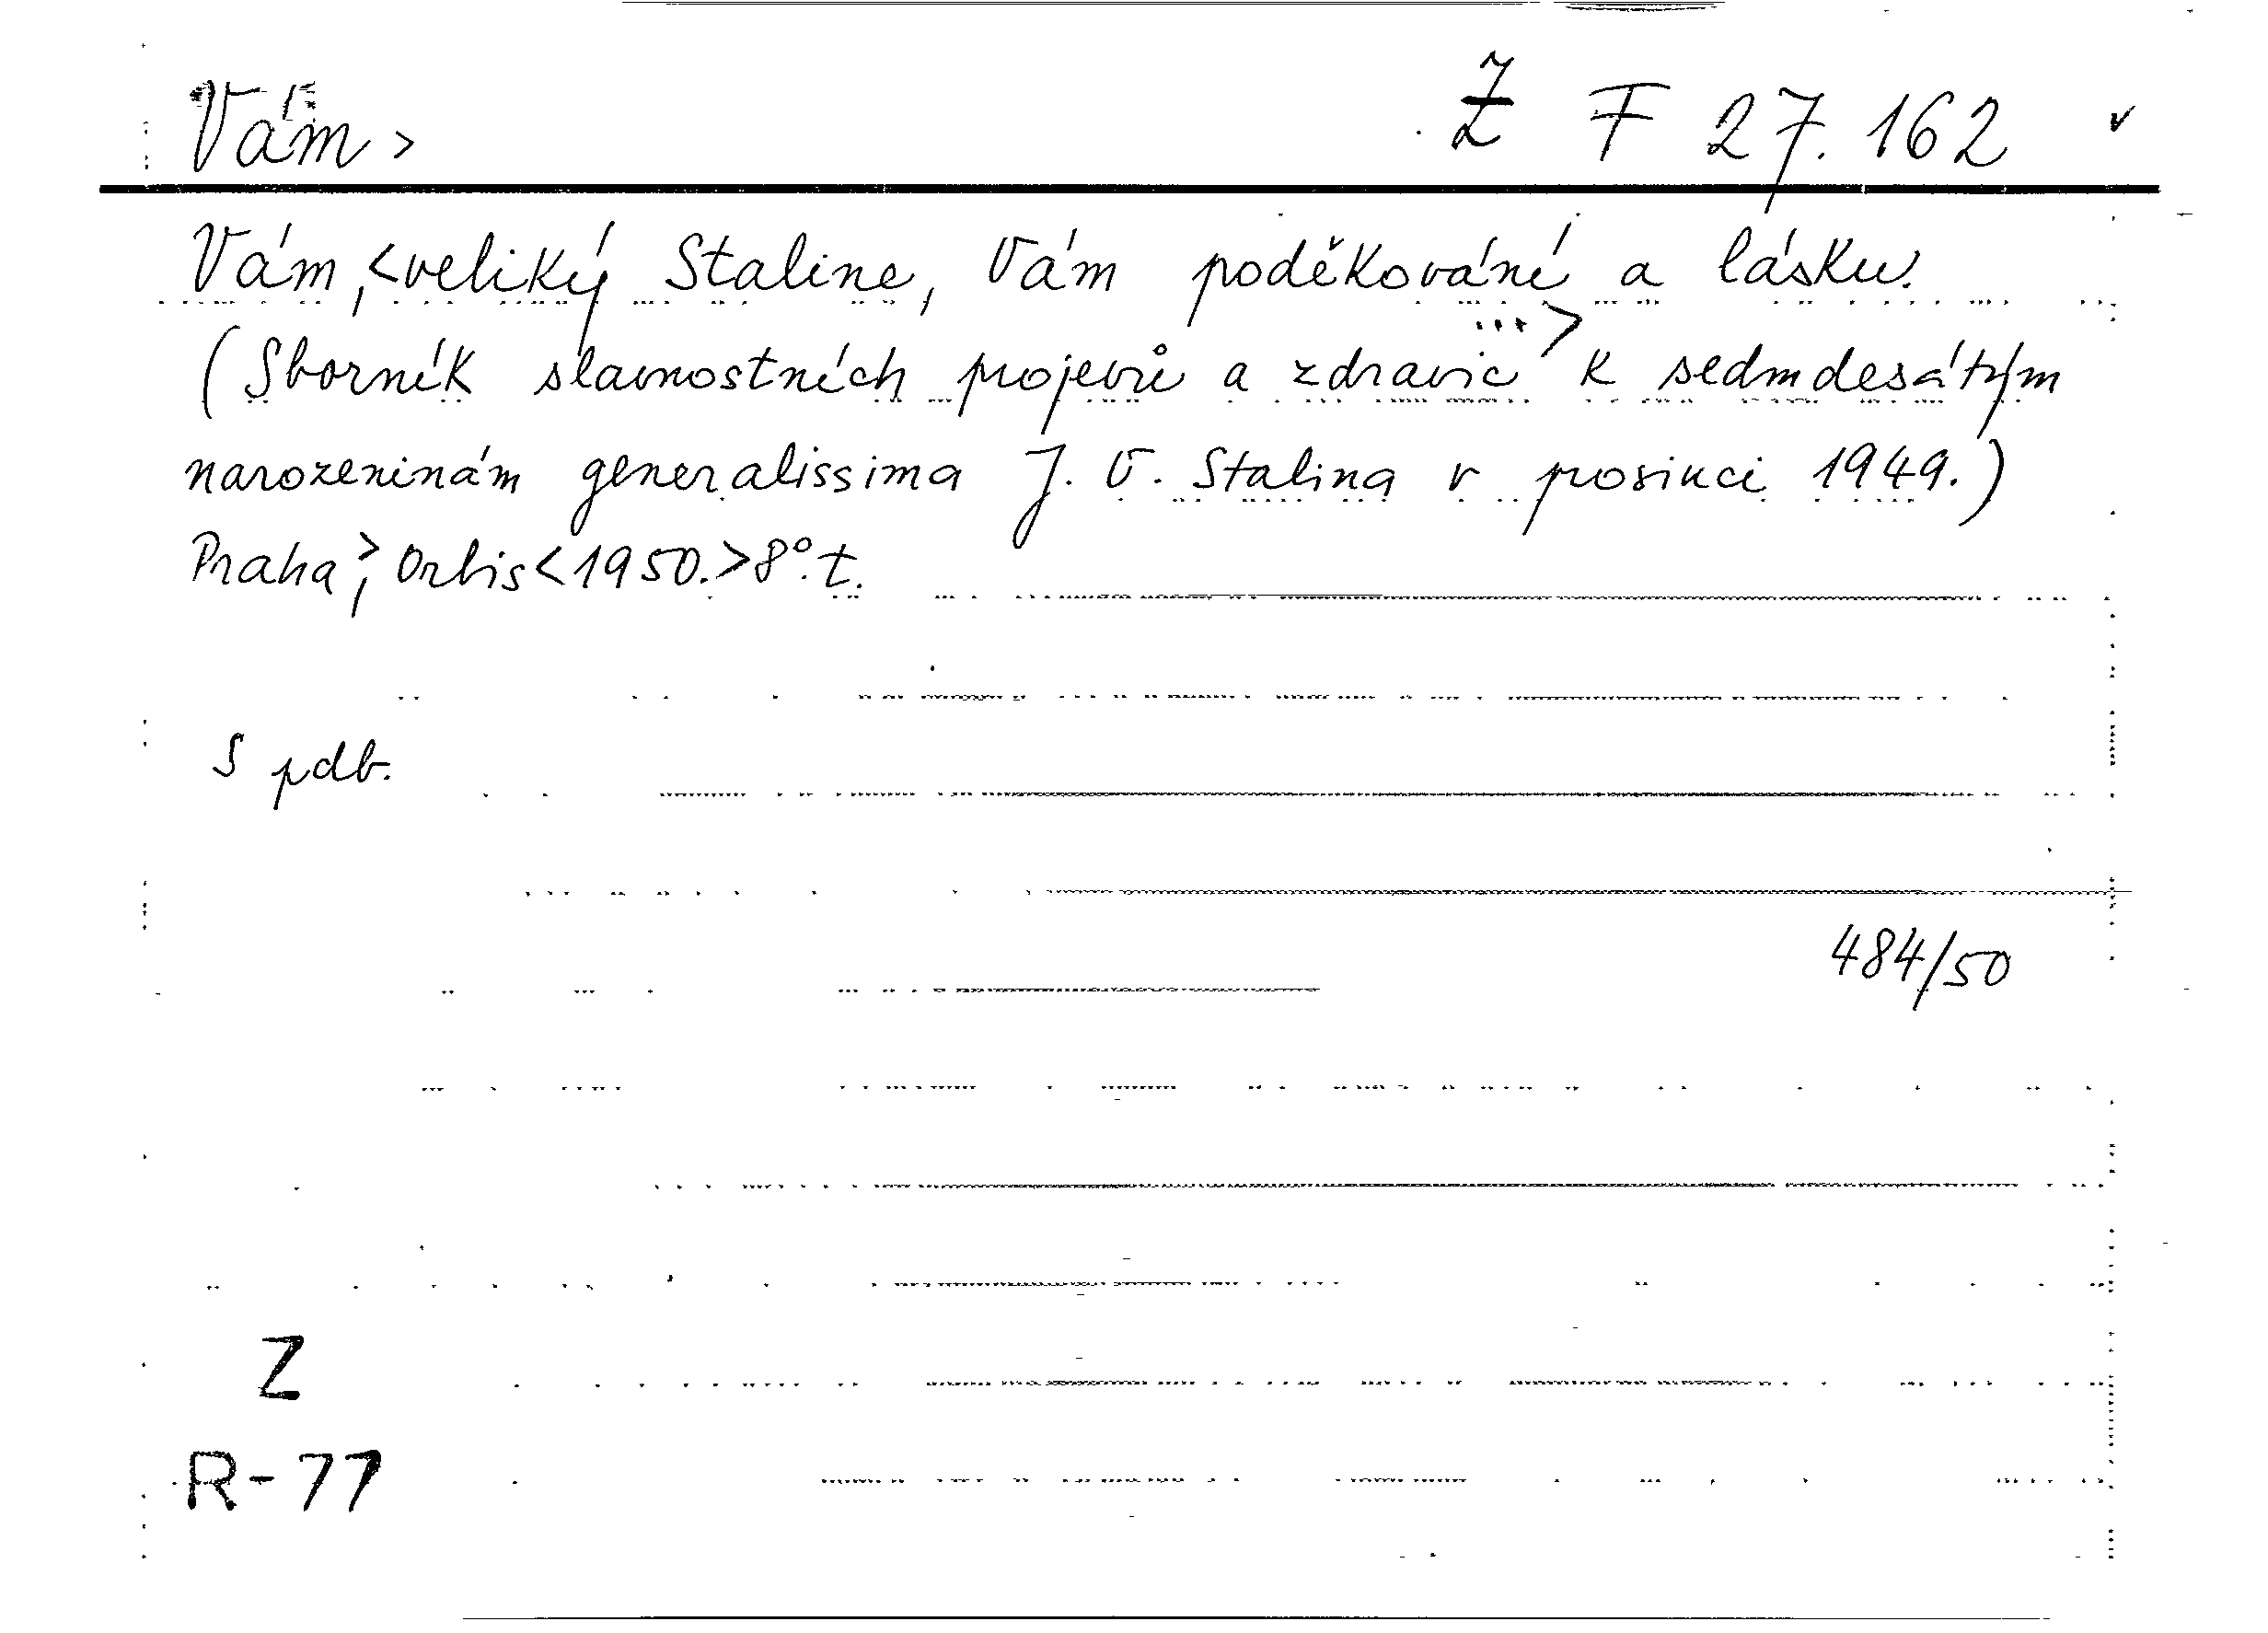 Vám > Ž F 27.162 v
Vám, <veliký Staline, Vám poděkování a lásku.
(Sborník slavnostních projevů a zdravic ...> k sedmdesátým
narozeninám generalissima J. V. Stalina v prosinci 1949.)
Praha>, Orbis <1950.> 8°. t.
S pdb.
484/50
Z
R-77